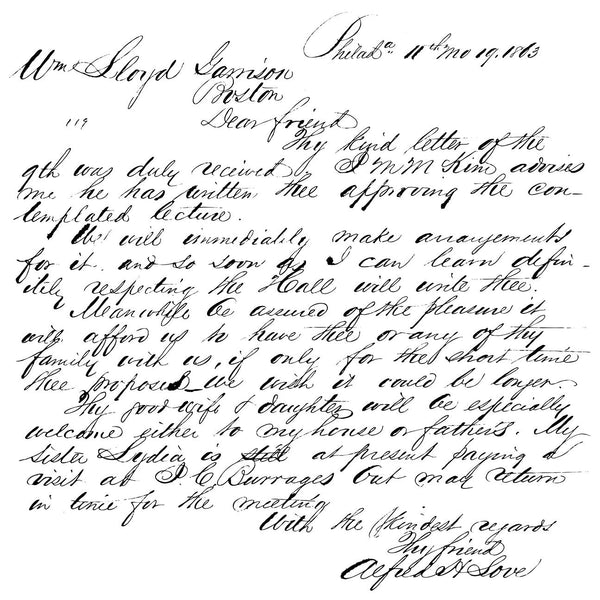 Philada 11th mo 19. 1863
Wm Lloyd Garrison
Boston
119
Dear friend
Thy kind letter of the
9th was duly received. J M M Kim advises
me he has written thee approving the con-
templated lecture.
We will immediately make arrangements
for it. and so soon as I can learn defin-
itely respecting the Hall will write thee.
Meanwhile be assured of the pleasure it
will afford us to have thee or any of thy
family with us, if only for the short time
thee proposed - we wish it could be longer.
Thy good wife & daughter will be especially
welcome either to my house or father's. My
sister Lydia is still at present paying a
visit at J. C. Burrages but may return
in time for the meeting
With the kindest regards
Thy friend
Alfred H Love